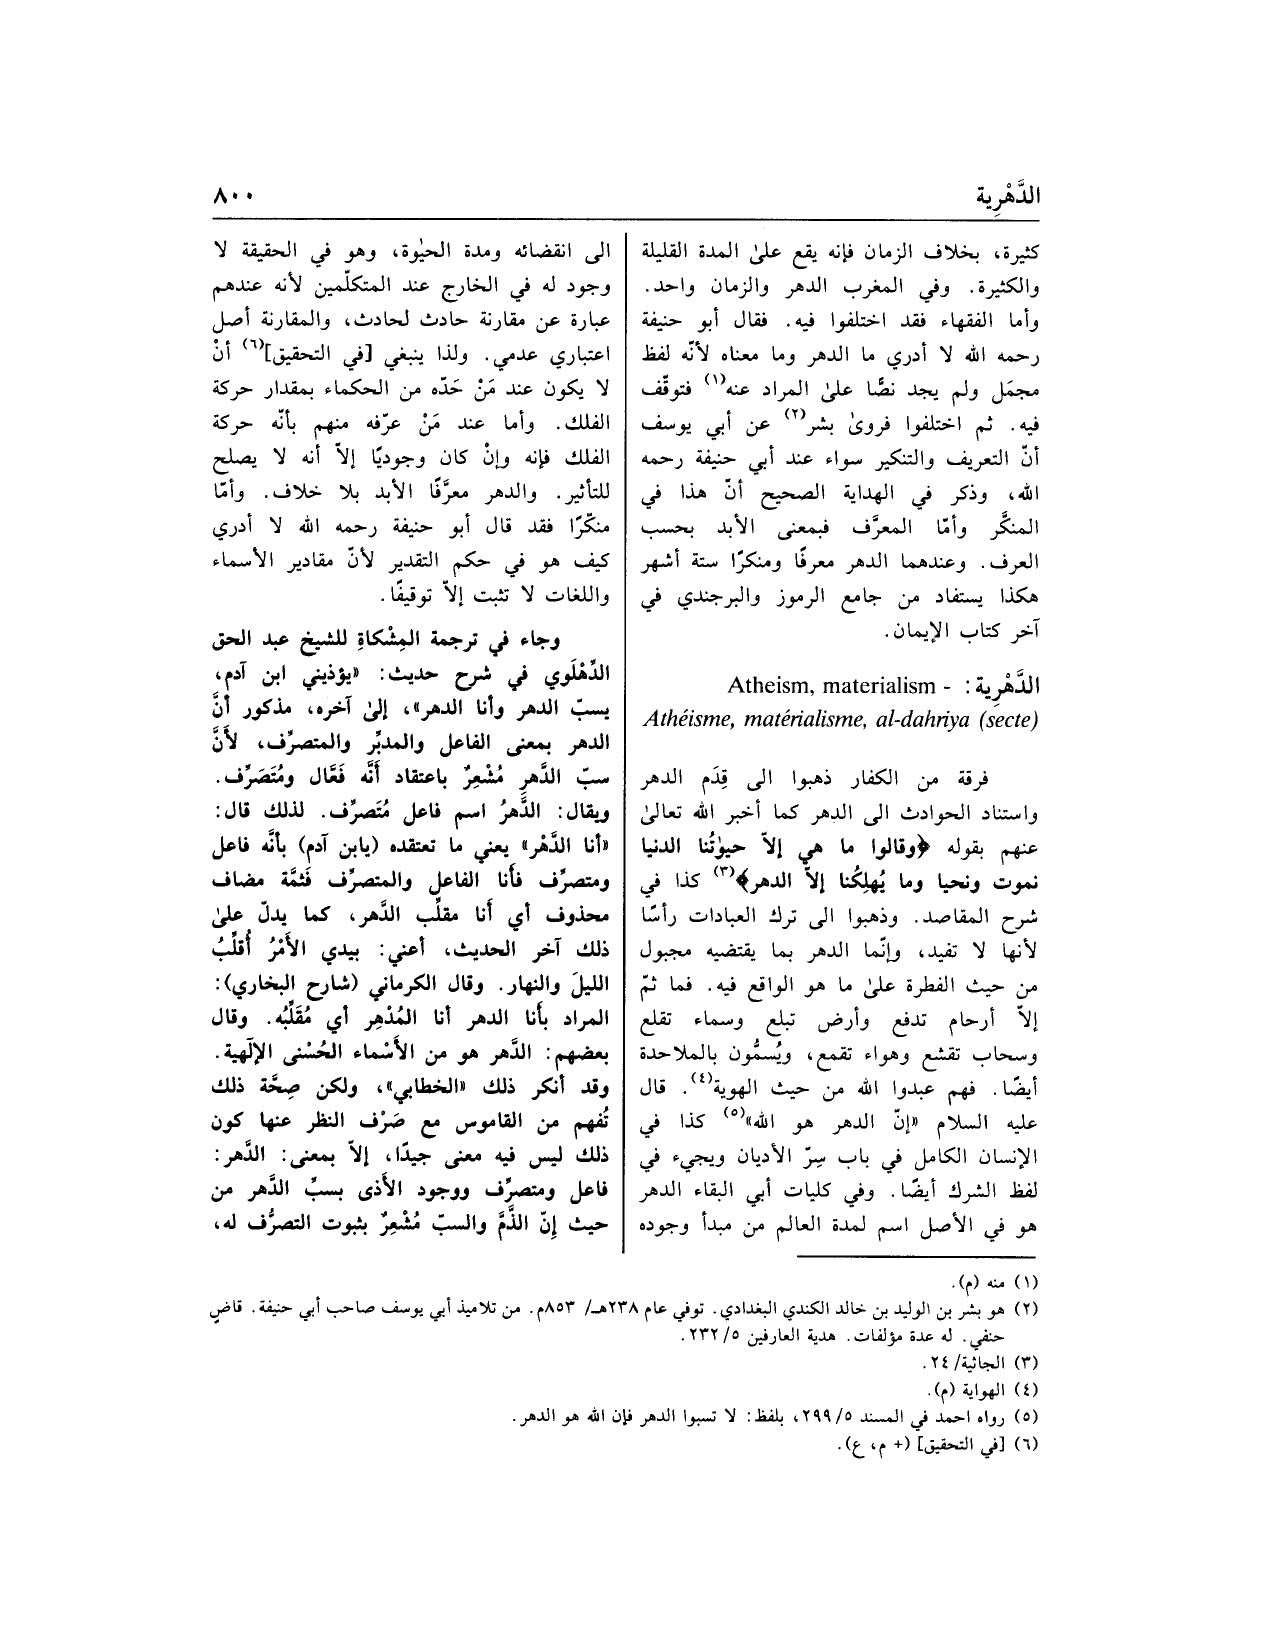 الدَّهْرِية
٨٠٠
كثيرة، بخلاف الزمان فإنه يقع علىٰ المدة القليلة
والكثيرة. وفي المغرب الدهر والزمان واحد.
وأما الفقهاء فقد اختلفوا فيه. فقال أبو حنيفة
رحمه الله لا أدري ما الدهر وما معناه لأنّه لفظ
مجمَل ولم يجد نصًّا علىٰ المراد عنه(١) فتوقّف
فيه. ثم اختلفوا فروىٰ بشر(٢) عن أبي يوسف
أنّ التعريف والتنكير سواء عند أبي حنيفة رحمه
الله، وذكر في الهداية الصحيح أنّ هذا في
المنكَّر وأمّا المعرَّف فبمعنى الأبد بحسب
العرف. وعندهما الدهر معرفًا ومنكرًا ستة أشهر
هكذا يستفاد من جامع الرموز والبرجندي في
آخر كتاب الإيمان.
الدَّهْرِية: - Atheism, materialism
Athéisme, matérialisme, al-dahriya (secte)
فرقة من الكفار ذهبوا الى قِدَم الدهر
واستناد الحوادث الى الدهر كما أخبر الله تعالىٰ
عنهم بقوله ﴿وقالوا ما هي إلاّ حيوٰتُنا الدنيا
نموت ونحيا وما يُهلِكُنا إلاّ الدهر﴾(٣) كذا في
شرح المقاصد. وذهبوا الى ترك العبادات رأسًا
لأنها لا تفيد، وإنّما الدهر بما يقتضيه مجبول
من حيث الفطرة علىٰ ما هو الواقع فيه. فما ثمّ
إلاّ أرحام تدفع وأرض تبلع وسماء تقلع
وسحاب تقشع وهواء تقمع، ويُسمُّون بالملاحدة
أيضًا. فهم عبدوا الله من حيث الهوية(٤). قال
عليه السلام «إنّ الدهر هو الله»(٥) كذا في
الإنسان الكامل في باب سِرّ الأديان ويجيء في
لفظ الشرك أيضًا. وفي كليات أبي البقاء الدهر
هو في الأصل اسم لمدة العالم من مبدأ وجوده
الى انقضائه ومدة الحيٰوة، وهو في الحقيقة لا
وجود له في الخارج عند المتكلّمين لأنه عندهم
عبارة عن مقارنة حادث لحادث، والمقارنة أصل
اعتباري عدمي. ولذا ينبغي [في التحقيق](٦) أنْ
لا يكون عند مَنْ حَدّه من الحكماء بمقدار حركة
الفلك. وأما عند مَنْ عرّفه منهم بأنّه حركة
الفلك فإنه وإنْ كان وجوديًا إلاّ أنه لا يصلح
للتأثير. والدهر معرَّفًا الأبد بلا خلاف. وأمّا
منكّرًا فقد قال أبو حنيفة رحمه الله لا أدري
كيف هو في حكم التقدير لأنّ مقادير الأسماء
واللغات لا تثبت إلاّ توقيفًا.
وجاء في ترجمة المِشْكاةِ للشيخ عبد الحق
الدِّهْلَوي في شرح حديث: «يؤذيني ابن آدم،
يسبّ الدهر وأنا الدهر»، إلىٰ آخره، مذكور أنَّ
الدهر بمعنى الفاعل والمدبِّر والمتصرِّف، لأَنَّ
سبّ الدَّهرِ مُشْعِرٌ باعتقاد أَنَّه فَعَّال ومُتَصَرِّف.
ويقال: الدَّهرُ اسم فاعل مُتَصرِّف. لذلك قال:
«أنا الدَّهْر» يعني ما تعتقده (يابن آدم) بأنَّه فاعل
ومتصرِّف فأنا الفاعل والمتصرِّف فَثمَّة مضاف
محذوف أي أَنا مقلِّب الدَّهر، كما يدلّ علىٰ
ذلك آخر الحديث، أعني: بيدي الأَمْرُ أُقلِّبُ
الليلَ والنهار. وقال الكرماني (شارح البخاري):
المراد بأَنا الدهر أنا المُدْهِر أي مُقَلِّبُه. وقال
بعضهم: الدَّهر هو من الأَسْماء الحُسْنى الإلٓهية.
وقد أنكر ذلك «الخطابي»، ولكن صِحَّة ذلك
تُفهم من القاموس مع صَرْف النظر عنها كون
ذلك ليس فيه معنى جيدًا، إلاّ بمعنى: الدَّهر:
فاعل ومتصرِّف ووجود الأذى بسبِّ الدَّهر من
حيث إِنّ الذَّمَّ والسبّ مُشْعِرٌ بثبوت التصرُّف له،
(١) منه (م).
(٢) هو بشر بن الوليد بن خالد الكندي البغدادي. توفي عام ٢٣٨هـ/ ٨٥٣م. من تلاميذ أبي يوسف صاحب أبي حنيفة. قاضٍ
حنفي. له عدة مؤلفات. هدية العارفين ٥/ ٢٣٢.
(٣) الجاثية/ ٢٤.
(٤) الهواية (م).
(٥) رواه احمد في المسند ٥/ ٢٩٩، بلفظ: لا تسبوا الدهر فإن الله هو الدهر.
(٦) [في التحقيق] (+ م، ع).